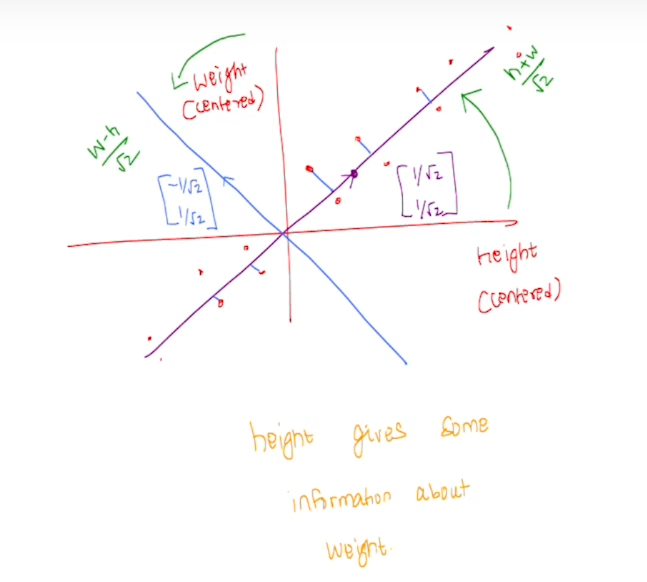 Weight
(centered)
h+w
√2
w-h
√2
[-1/√2
1/√2]
[1/√2
1/√2]
height
(centered)
height gives some
information about
weight.